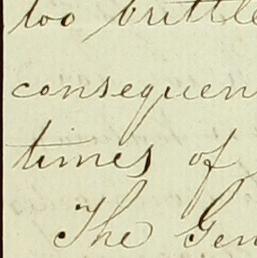 too brittle
consequen
times of
The Gen